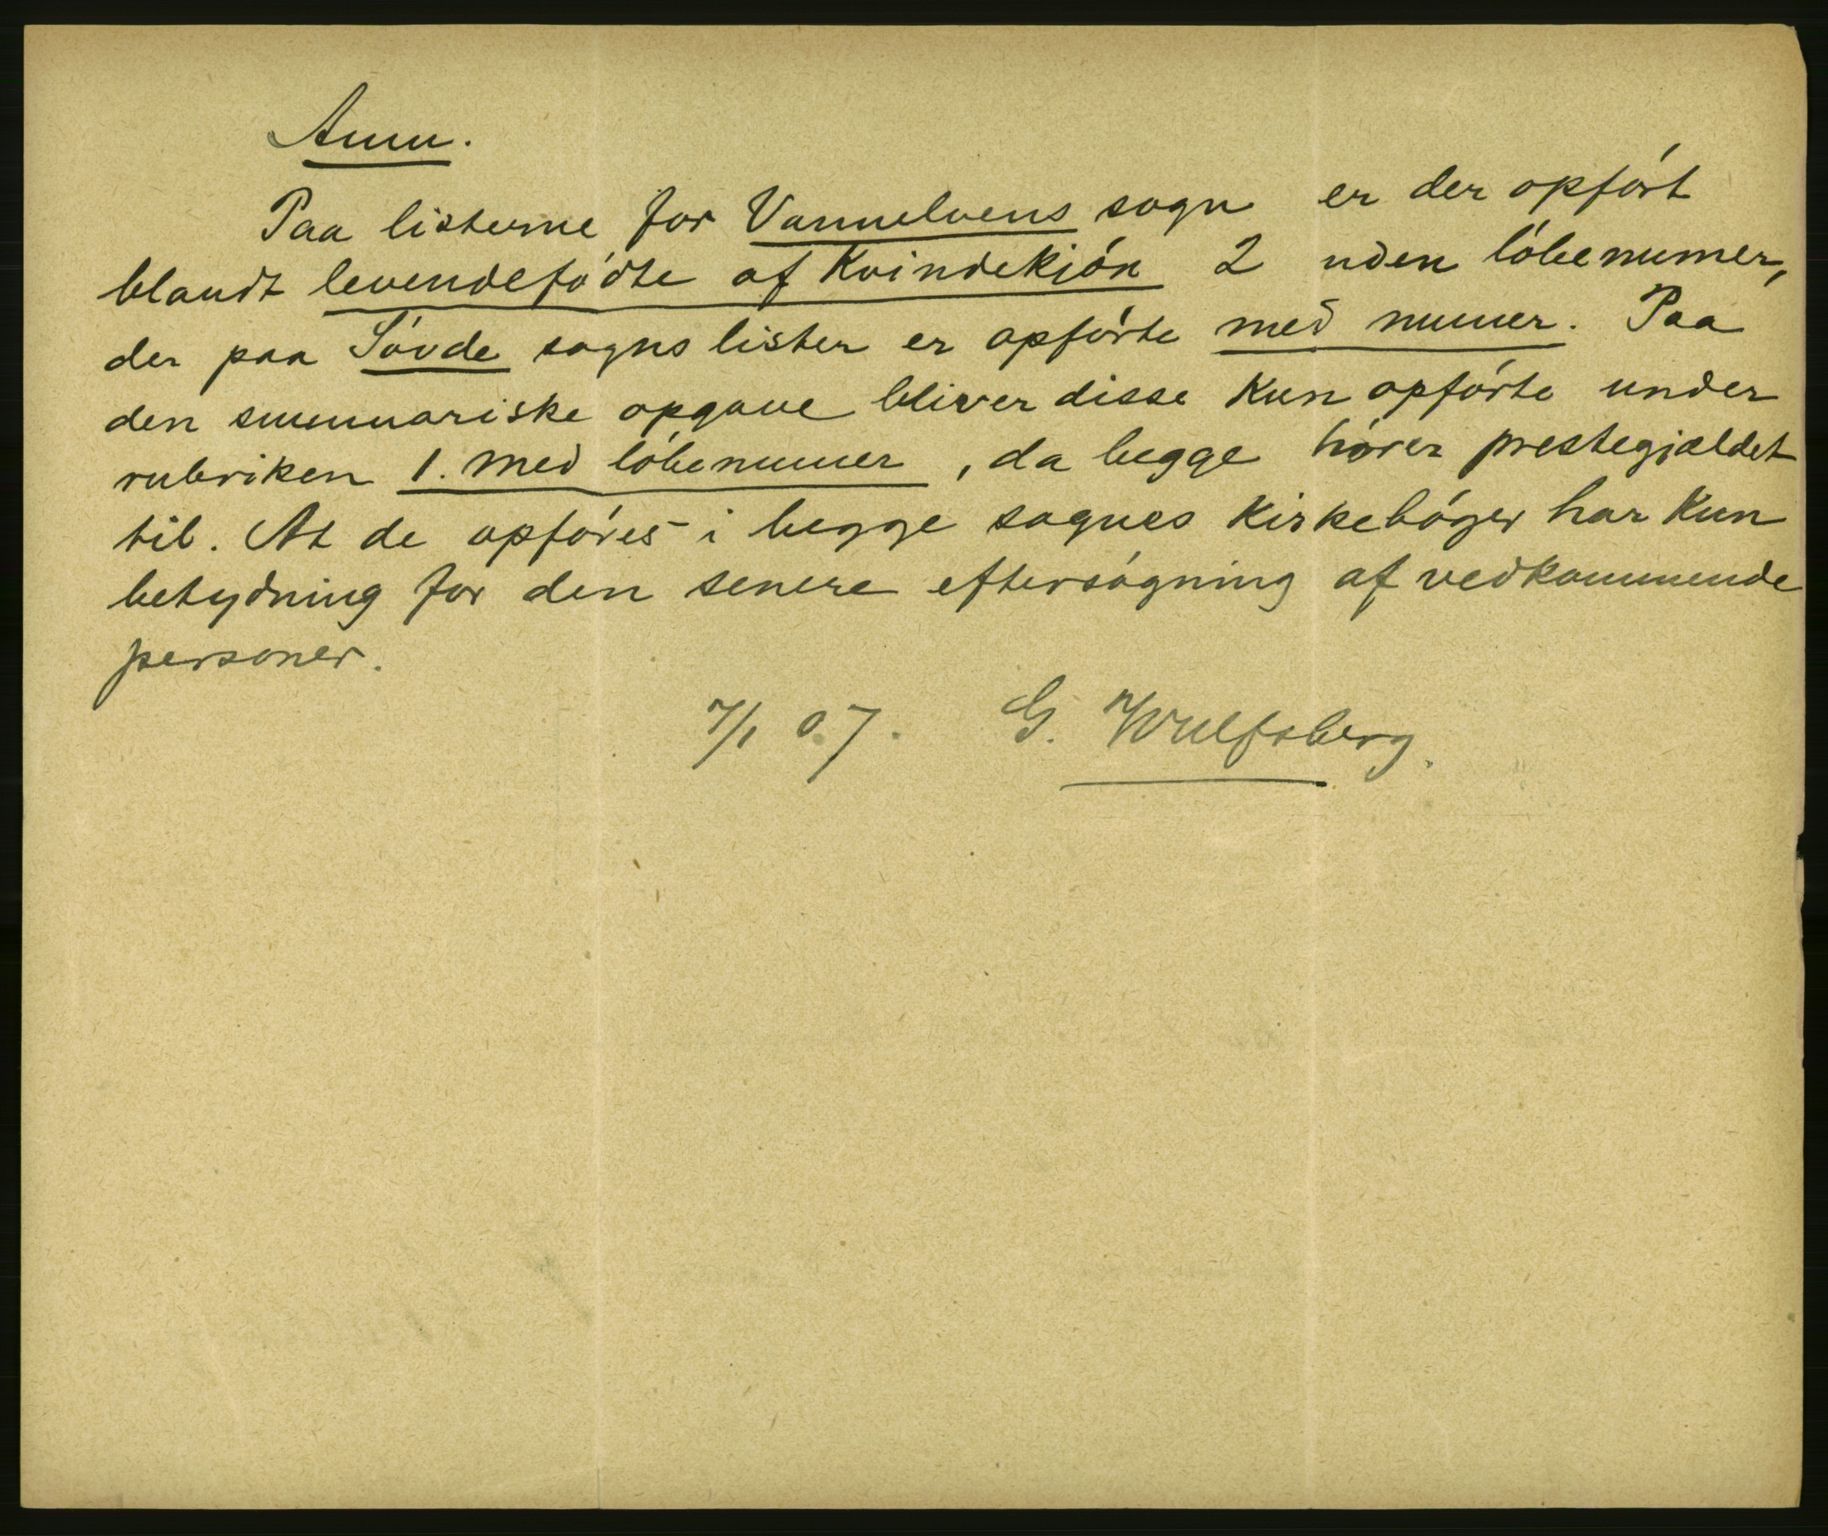 Anm.
Paa listerne for Vannelvens sogn er der opført
blandt levendefødte af Kvindekjøn 2 uden løbenumer,
der paa Søvde sogns lister er opførte med numer. Paa
den summariske opgave bliver disse kun opførte under
rubriken 1. med løbenumer, da begge hører prestegjældet
til. At de opføres i begge sognes kirkebøger har kun
betydning for den senere eftersøgning af vedkommende
personer.
7/1 07. G. Wulfsberg.